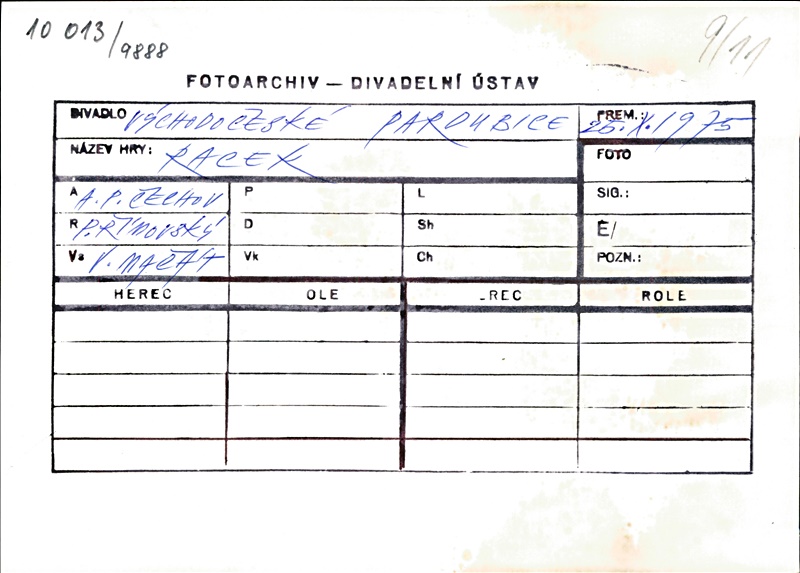 10 013/9888
9/11
FOTOARCHIV — DIVADELNÍ ÚSTAV
DIVADLO VÝCHODOČESKÉ PARDUBICE PREM.: 25.X.1975
NÁZEV HRY: RACEK FOTO
A A.P.ČECHOV P L SIG.:
R P.ŘÍMOVSKÝ D Sh Č/
Vs V. MAČÁT Vk Ch POZN.:
HEREC OLE REC ROLE